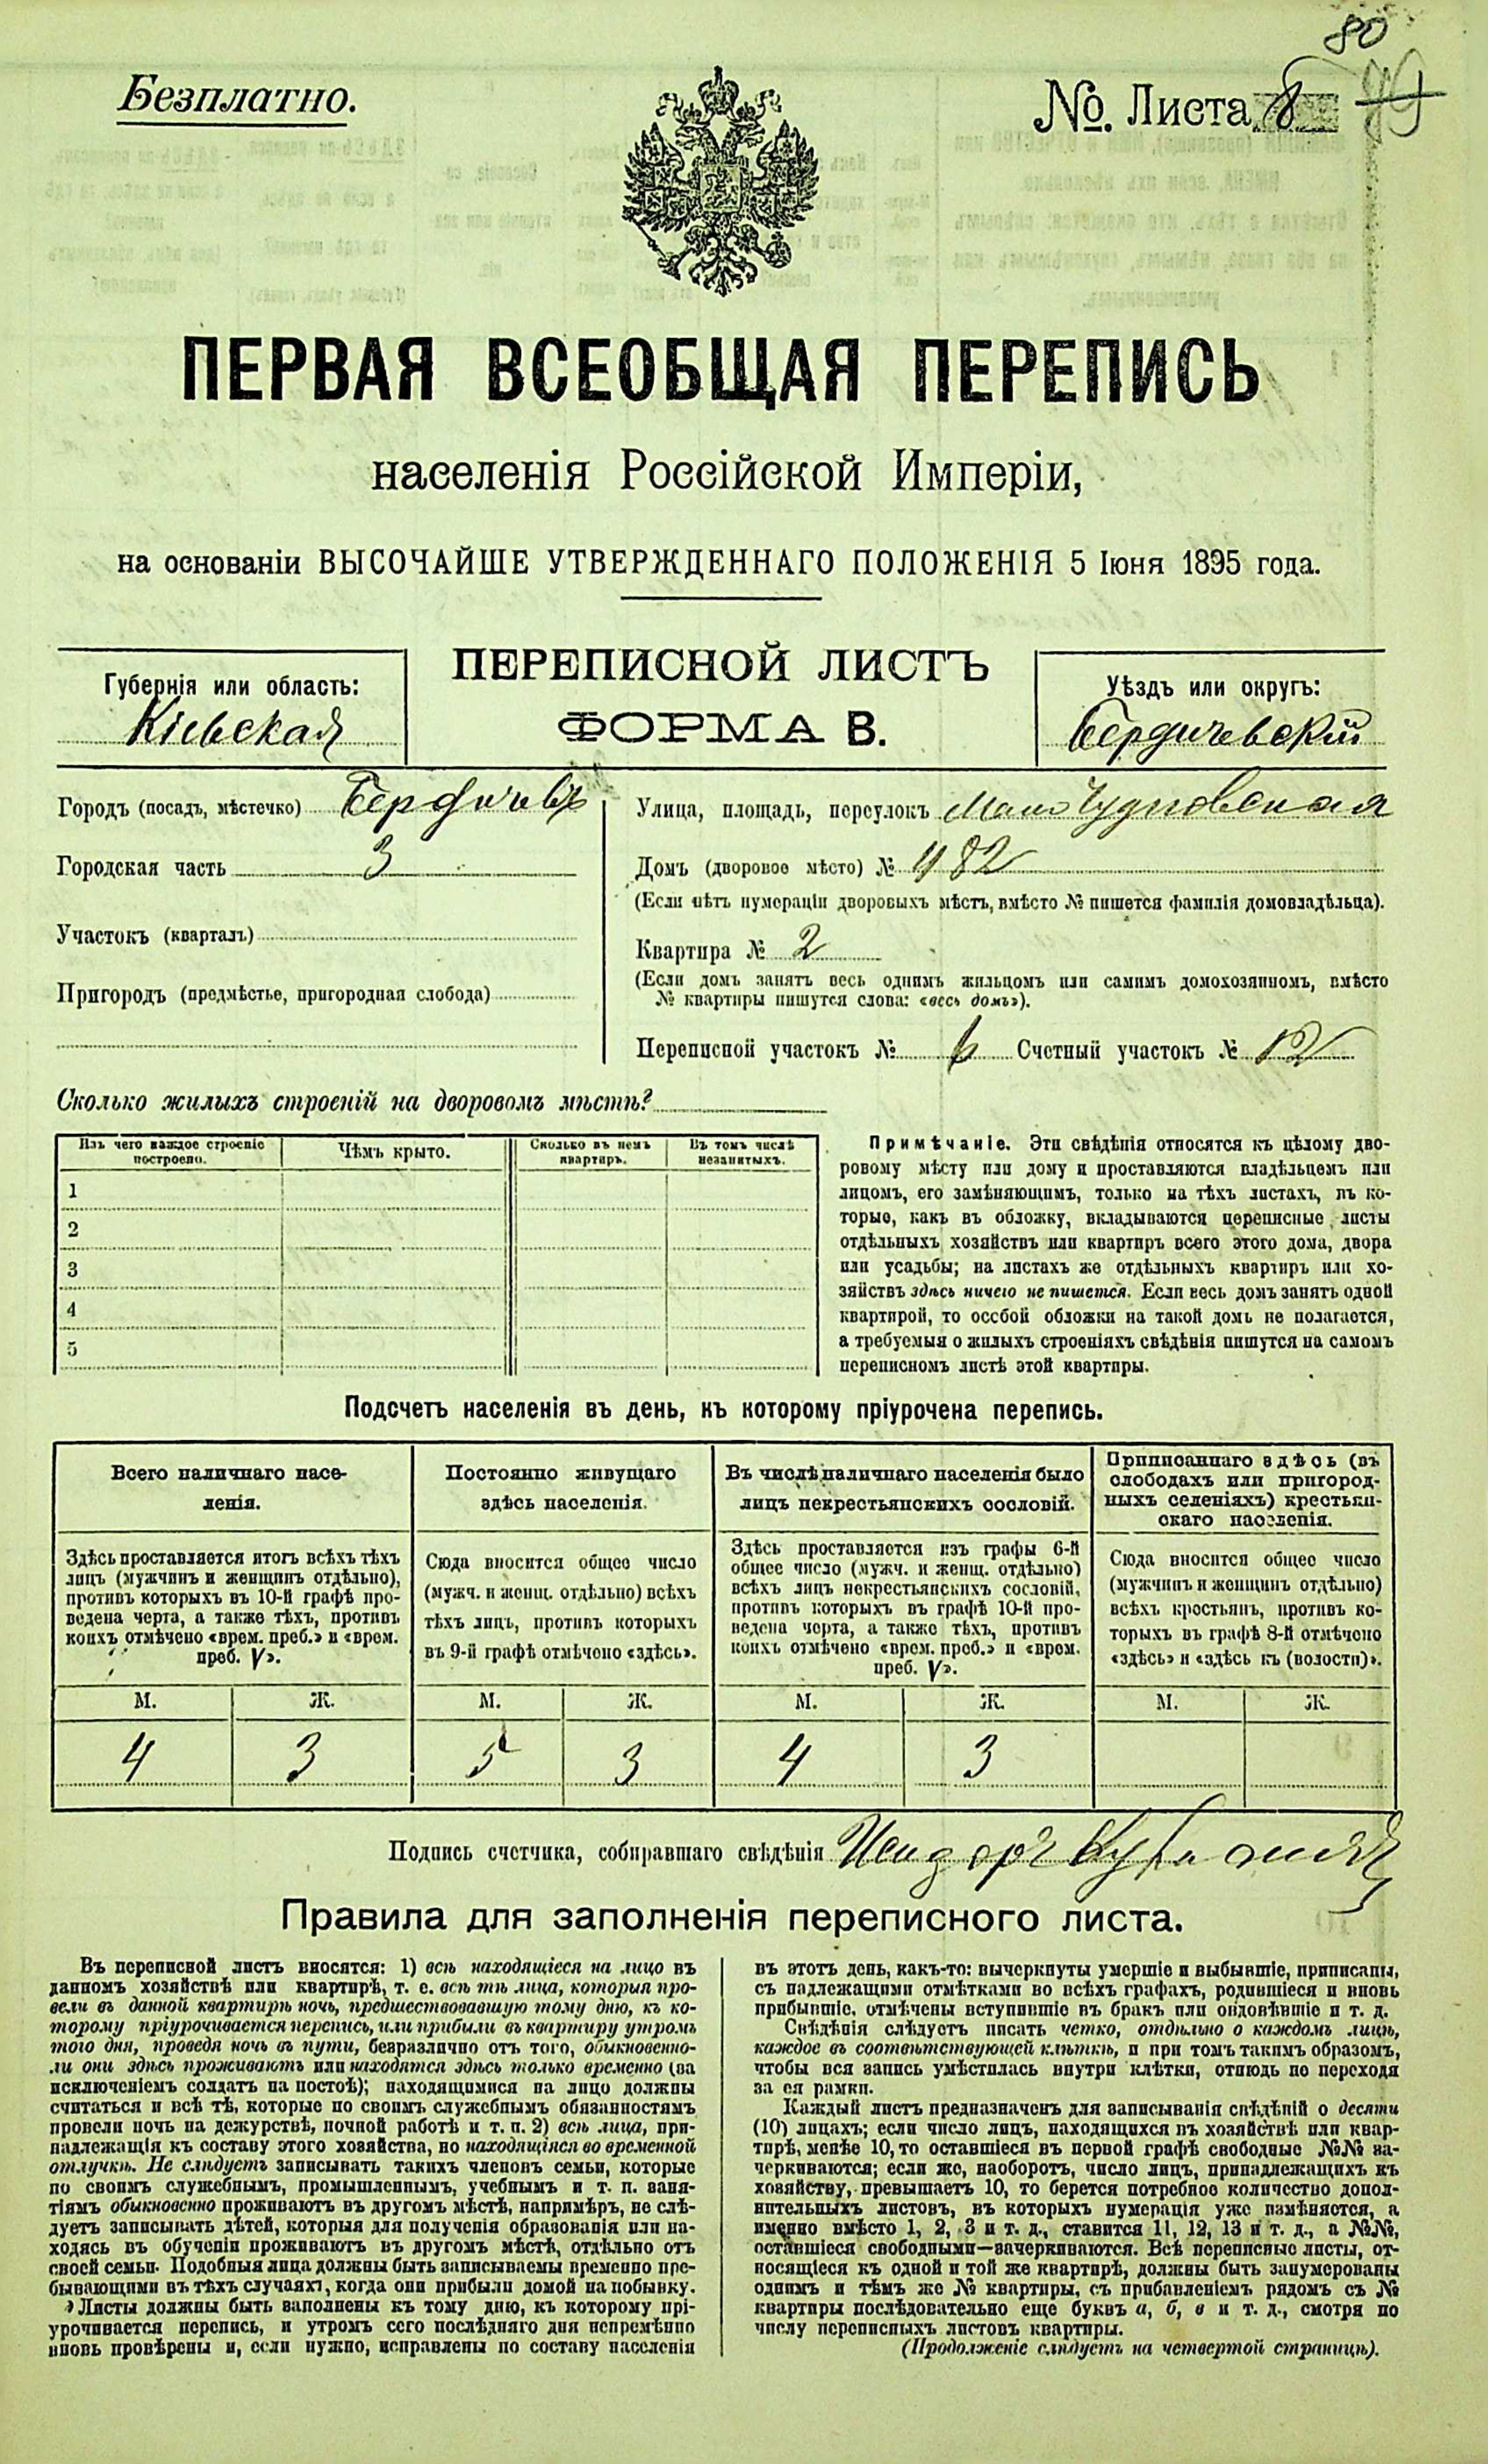 80
Безплатно.
№ Листа 8
ПЕРВАЯ ВСЕОБЩАЯ ПЕРЕПИСЬ
населенія Россійской Имперіи,
на основаніи ВЫСОЧАЙШЕ УТВЕРЖДЕННАГО ПОЛОЖЕНІЯ 5 Іюня 1895 года.
Губернія или область:
Кіевская
ПЕРЕПИСНОЙ ЛИСТЪ
ФОРМА В.
Уѣздъ или округъ:
Бердичевскій
Городъ (посадъ, мѣстечко) Бердичевъ
Городская часть 3
Участокъ (кварталъ)
Пригородъ (предмѣстье, пригородная слобода)
Улица, площадь, переулокъ Мало Чудновская
Домъ (дворовое мѣсто) № 482
(Если нѣтъ нумераціи дворовыхъ мѣстъ, вмѣсто № пишется фамилія домовладѣльца).
Квартира № 2
(Если домъ занятъ весь однимъ жильцомъ или самимъ домохозяиномъ, вмѣсто
№ квартиры пишутся слова: «весь домъ»).
Переписной участокъ № 6 Счетный участокъ № 12
Сколько жилыхъ строеній на дворовомъ мѣстѣ?
Изъ чего каждое строеніе построено.
Чѣмъ крыто.
Сколько въ немъ квартиръ.
Въ томъ числѣ незанятыхъ.
1
2
3
4
5
Примѣчаніе. Эти свѣдѣнія относятся къ цѣлому дво-
ровому мѣсту или дому и проставляются владѣльцемъ или
лицомъ, его замѣняющимъ, только на тѣхъ листахъ, въ ко-
торые, какъ въ обложку, вкладываются переписные листы
отдѣльныхъ хозяйствъ или квартиръ всего этого дома, двора
или усадьбы; на листахъ же отдѣльныхъ квартиръ или хо-
зяйствъ здѣсь ничего не пишется. Если весь домъ занятъ одной
квартирой, то особой обложки на такой домъ не полагается,
а требуемыя о жилыхъ строеніяхъ свѣдѣнія пишутся на самомъ
переписномъ листѣ этой квартиры.
Подсчетъ населенія въ день, къ которому пріурочена перепись.
Всего наличнаго насе-
ленія.
Здѣсь проставляется итогъ всѣхъ тѣхъ
лицъ (мужчинъ и женщинъ отдѣльно),
противъ которыхъ въ 10-й графѣ про-
ведена черта, а также тѣхъ, противъ
коихъ отмѣчено «врем. преб.» и «врем.
преб. V».
Постоянно живущаго
здѣсь населенія.
Сюда вносится общее число
(мужч. и женщ. отдѣльно) всѣхъ
тѣхъ лицъ, противъ которыхъ
въ 9-й графѣ отмѣчено «здѣсь».
Въ числѣ наличнаго населенія было
лицъ некрестьянскихъ сословій.
Здѣсь проставляется изъ графы 6-й
общее число (мужч. и женщ. отдѣльно)
всѣхъ лицъ некрестьянскихъ сословій,
противъ которыхъ въ графѣ 10-й про-
ведена черта, а также тѣхъ, противъ
коихъ отмѣчено «врем. преб.» и «врем.
преб. V».
Приписаннаго здѣсь (въ
слободахъ или пригород-
ныхъ селеніяхъ) крестьян-
скаго населенія.
Сюда вносится общее число
(мужчинъ и женщинъ отдѣльно)
всѣхъ крестьянъ, противъ ко-
торыхъ въ графѣ 8-й отмѣчено
«здѣсь» и «здѣсь къ (волости)».
М. Ж. М. Ж. М. Ж. М. Ж.
4 3 5 3 4 3
Подпись счетчика, собиравшаго свѣдѣнія Исидоръ
Правила для заполненія переписного листа.
Въ переписной листъ вносятся: 1) всѣ находящіеся на лицо въ
данномъ хозяйствѣ или квартирѣ, т. е. всѣ тѣ лица, которыя про-
вели въ данной квартирѣ ночь, предшествовавшую тому дню, къ ко-
торому пріурочивается перепись, или прибыли въ квартиру утромъ
того дня, проведя ночь въ пути, безразлично отъ того, обыкновенно-
ли они здѣсь проживаютъ или находятся здѣсь только временно (за
исключеніемъ солдатъ на постоѣ); находящимися на лицо должны
считаться и всѣ тѣ, которые по своимъ служебнымъ обязанностямъ
провели ночь на дежурствѣ, ночной работѣ и т. п. 2) всѣ лица, при-
надлежащія къ составу этого хозяйства, но находящіяся во временной
отлучкѣ. Не слѣдуетъ записывать такихъ членовъ семьи, которые
по своимъ служебнымъ, промышленнымъ, учебнымъ и т. п. заня-
тіямъ обыкновенно проживаютъ въ другомъ мѣстѣ, напримѣръ, не слѣ-
дуетъ записывать дѣтей, которыя для полученія образованія или на-
ходясь въ обученіи проживаютъ въ другомъ мѣстѣ, отдѣльно отъ
своей семьи. Подобныя лица должны быть записываемы временно пре-
бывающими въ тѣхъ случаяхъ, когда они прибыли домой на побывку.
Листы должны быть заполнены къ тому дню, къ которому прі-
урочивается перепись, и утромъ сего послѣдняго дня непремѣнно
вновь провѣрены и, если нужно, исправлены по составу населенія
въ этотъ день, какъ-то: вычеркнуты умершіе и выбывшіе, приписаны,
съ надлежащими отмѣтками во всѣхъ графахъ, родившіеся и вновь
прибывшіе, отмѣчены вступившіе въ бракъ или овдовѣвшіе и т. д.
Свѣдѣнія слѣдуетъ писать четко, отдѣльно о каждомъ лицѣ,
каждое въ соотвѣтствующей клѣткѣ, и при томъ такимъ образомъ,
чтобы вся запись умѣстилась внутри клѣтки, отнюдь не переходя
за ея рамки.
Каждый листъ предназначенъ для записыванія свѣдѣній о десяти
(10) лицахъ; если число лицъ, находящихся въ хозяйствѣ или квар-
тирѣ, менѣе 10, то оставшіеся въ первой графѣ свободные №№ за-
черкиваются; если же, наоборотъ, число лицъ, принадлежащихъ къ
хозяйству, превышаетъ 10, то берется потребное количество допол-
нительныхъ листовъ, въ которыхъ нумерація уже измѣняется, а
именно вмѣсто 1, 2, 3 и т. д., ставится 11, 12, 13 и т. д., а №№,
оставшіеся свободными—зачеркиваются. Всѣ переписные листы, от-
носящіеся къ одной и той же квартирѣ, должны быть занумерованы
однимъ и тѣмъ же № квартиры, съ прибавленіемъ рядомъ съ №
квартиры послѣдовательно еще буквъ а, б, в и т. д., смотря по
числу переписныхъ листовъ квартиры.
(Продолженіе слѣдуетъ на четвертой страницѣ).